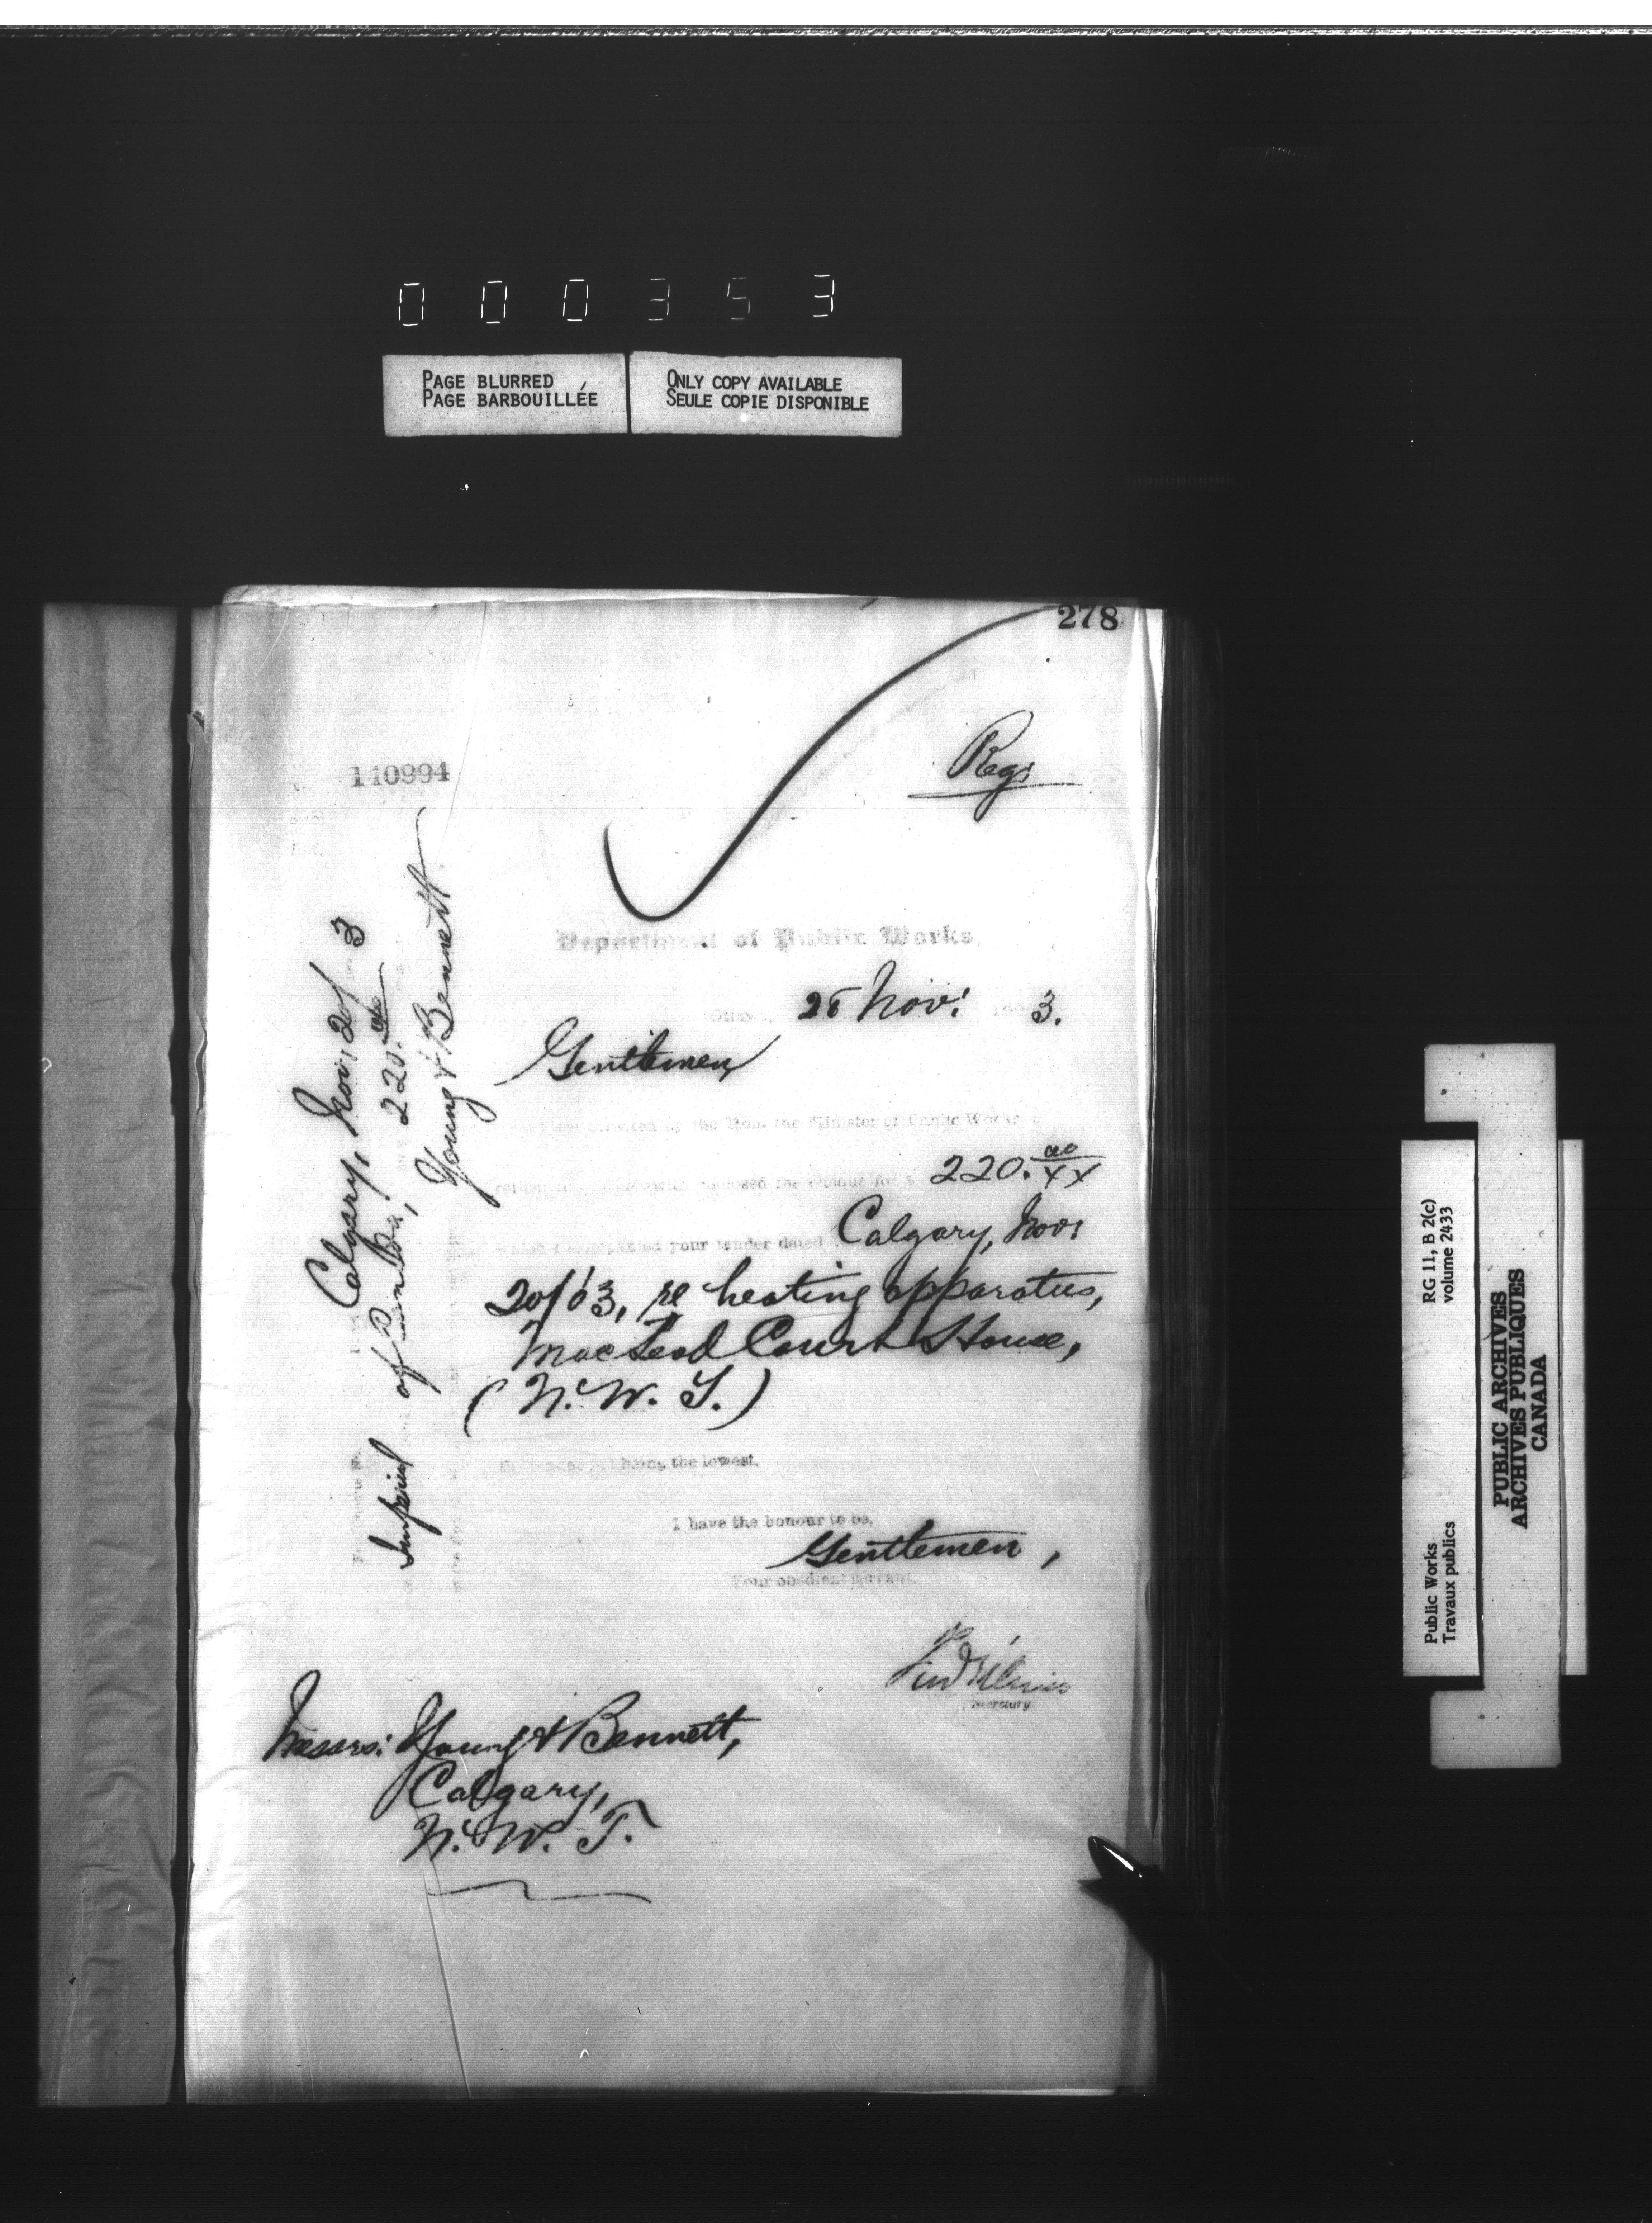 000353
PAGE BLURRED
PAGE BARBOUILLÉE
ONLY COPY AVAILABLE
SEULE COPIE DISPONIBLE
278
Regs
110994
Department of Public Works,
Nov: 3.
Gentlemen,
by the Hon. the Minister of Public Works
enclosed the cheque for $ 220.00/xx
your tender dated Calgary, Nov:
20/03, re heating apparatus,
MacLeod Court House,
(N. W. T.)
being the lowest.
I have the honour to be,
Gentlemen,
Your obedient servant,
Secretary
Messrs: Young & Bennett,
Calgary,
N. W. T.
Calgary, Nov: 20/ 3
Imperial of Canada, 220.
Young & Bennett
Public Works
Travaux publics
RG 11, B 2(c)
volume 2433
PUBLIC ARCHIVES
ARCHIVES PUBLIQUES
CANADA